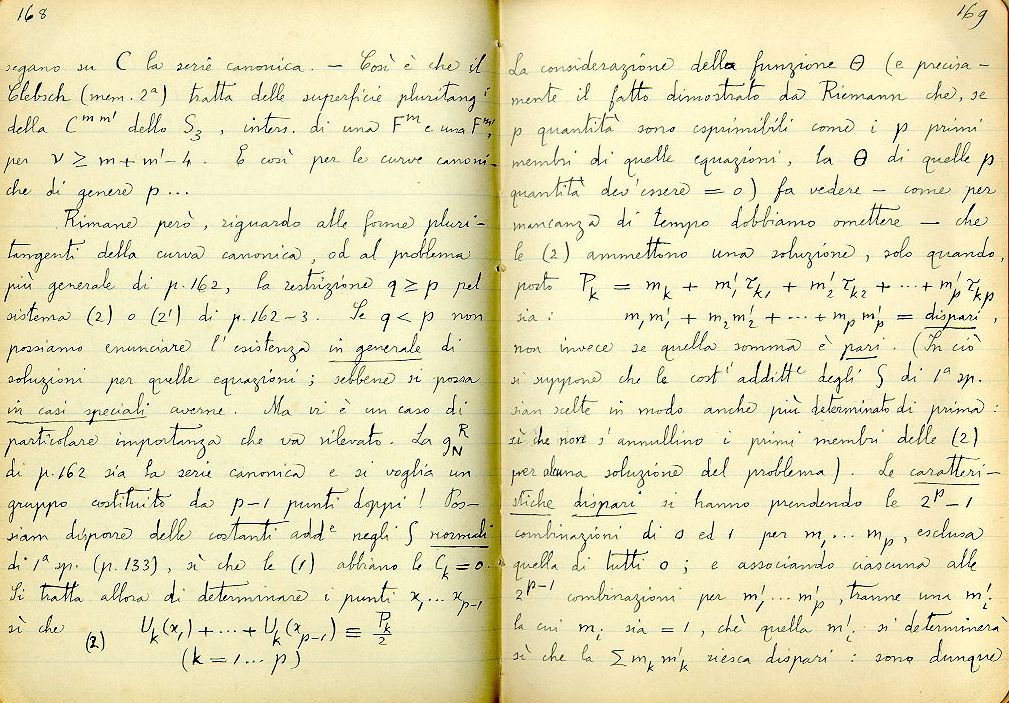 168
segano su C la serie canonica. — Così è che il
Clebsch (mem. 2ª) tratta delle superficie pluritangᶦ
della C^{mm'} dello S₃, inters. di una F^m e una F^{m'},
per ν ≥ m + m' − 4. E così per le curve canoni-
che di genere p...
Rimane però, riguardo alle forme pluri-
tangenti della curva canonica, od al problema
più generale di p. 162, la restrizione q ≥ p pel
sistema (2) o (2') di p. 162-3. Se q < p non
possiamo enunciare l'esistenza in generale di
soluzioni per quelle equazioni; sebbene si possa
in casi speciali averne. Ma vi è un caso di
particolare importanza che va rilevato. La g_N^R
di p. 162 sia la serie canonica e si voglia un
gruppo costituito da p−1 punti doppi! Pos-
siam disporre delle costanti addᵉ negli ∫ normali
di 1ª sp. (p. 133), sì che le (1) abbiano le C_k = 0.
Si tratta allora di determinare i punti x₁ ... x_{p−1}
sì che
(2) U_k(x₁) + ... + U_k(x_{p−1}) ≡ P_k/2
(k = 1 ... p)
169
La considerazione della funzione Θ (e precisa-
mente il fatto dimostrato da Riemann che, se
p quantità sono esprimibili come i p primi
membri di quelle equazioni, la Θ di quelle p
quantità dev'essere = 0) fa vedere — come per
mancanza di tempo dobbiamo omettere — che
le (2) ammettono una soluzione, solo quando,
posto P_k = m_k + m'₁ τ_{k1} + m'₂ τ_{k2} + ... + m'_p τ_{kp}
sia: m₁m'₁ + m₂m'₂ + ... + m_p m'_p = dispari,
non invece se quella somma è pari. (In ciò
si suppone che le costᶦ additᵉ degli ∫ di 1ª sp.
sian scelte in modo anche più determinato di prima:
sì che non s'annullino i primi membri delle (2)
per alcuna soluzione del problema). Le caratteri-
stiche dispari si hanno prendendo le 2^p − 1
combinazioni di 0 ed 1 per m₁ ... m_p, esclusa
quella di tutti 0; e associando ciascuna alle
2^{p−1} combinazioni per m'₁ ... m'_p, tranne una m'ᵢ
la cui mᵢ sia = 1, chè quella m'ᵢ si determinerà
sì che la Σ m_k m'_k riesca dispari: sono dunque